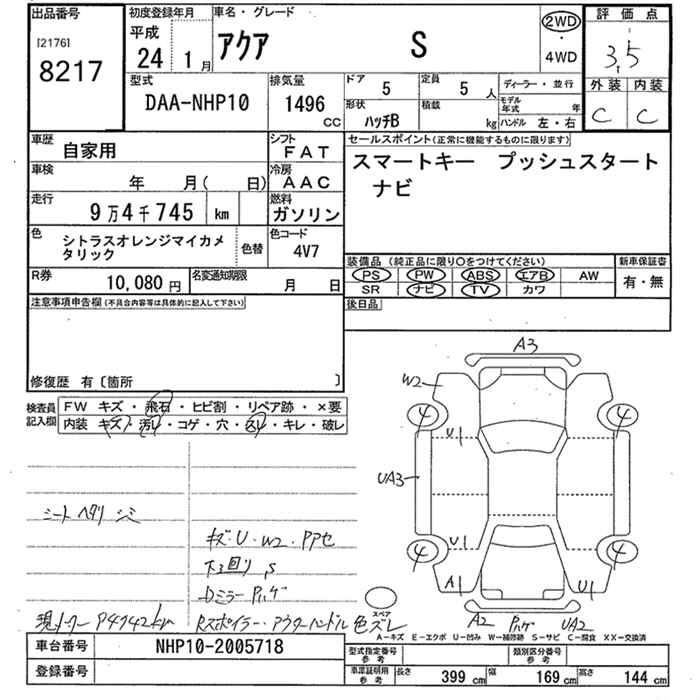 出品番号
[2176]
8217
初度登録年月
平成
24 1月
車名・グレード
アクア S
2WD
・
4WD
評価点
3.5
外装 内装
C C
型式
DAA-NHP10
排気量
1496
CC
ドア 5
定員 5 人
形状
ハッチB
積載
kg
ディーラー・並行
モデル年式 年
ハンドル 左・右
車歴
自家用
シフト
FAT
車検
年 月( 日)
冷房
AAC
走行
9万4千745 km
燃料
ガソリン
色
シトラスオレンジマイカメタリック
色替
色コード
4V7
R券
10,080円
名変通知期限
月 日
セールスポイント(正常に機能するものに限ります)
スマートキー プッシュスタート
ナビ
装備品(純正品に限り○をつけてください)
PS PW ABS エアB AW
SR ナビ TV カワ
新車保証書
有・無
後日品
注意事項申告欄(不具合内容等は具体的に記入して下さい)
修復歴 有〔箇所 〕
検査員記入欄
FW キズ・飛石・ヒビ割・リペア跡・×要
内装 キズ・汚レ・コゲ・穴・スレ・キレ・破レ
シートヘタリ シミ
キズ・U・W2・PPアセ
下回り S
Dミラー Pハゲ
現メーター P94742km
Rスポイラー・アウターハンドル 色ズレ
A3
W2
4
4
U1
UA3
U1
4
4
A1
U1
A2 Pハゲ UA2
スペア
A-キズ E-エクボ U-凹み W-補修跡 S-サビ C-腐食 XX-交換済
車台番号
NHP10-2005718
登録番号
型式指定番号
参考
類別区分番号
参考
車庫証明用
参考
長さ 399 cm
幅 169 cm
高さ 144 cm